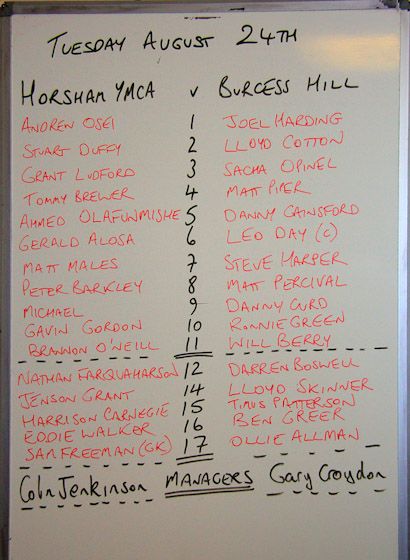 TUESDAY AUGUST 24TH
HORSHAM YMCA v BURGESS HILL
ANDREN OSEI 1 JOEL HARDING
STUART DUFFY 2 LLOYD COTTON
GRANT LUDFORD 3 SACHA OPINEL
TOMMY BREWER 4 MATT PIPER
AHMED OLAFUNMISHE 5 DANNY GAINSFORD
GERALD ALOSA 6 LEO DAY (C)
MATT MALES 7 STEVE HARPER
PETER BARKLEY 8 MATT PERCIVAL
MICHAEL 9 DANNY CURD
GAVIN GORDON 10 RONNIE GREEN
BRANNON O'NEILL 11 WILL BERRY
NATHAN FARQUAHARSON 12 DARREN BOSWELL
JENSON GRANT 14 LLOYD SKINNER
HARRISON CARNEGIE 15 PATTERSON
EDDIE WALKER 16 BEN GREER
SAM FREEMAN (GK) 17 OLLIE ALLMAN
Colin Jenkinson MANAGERS Gary Croydon